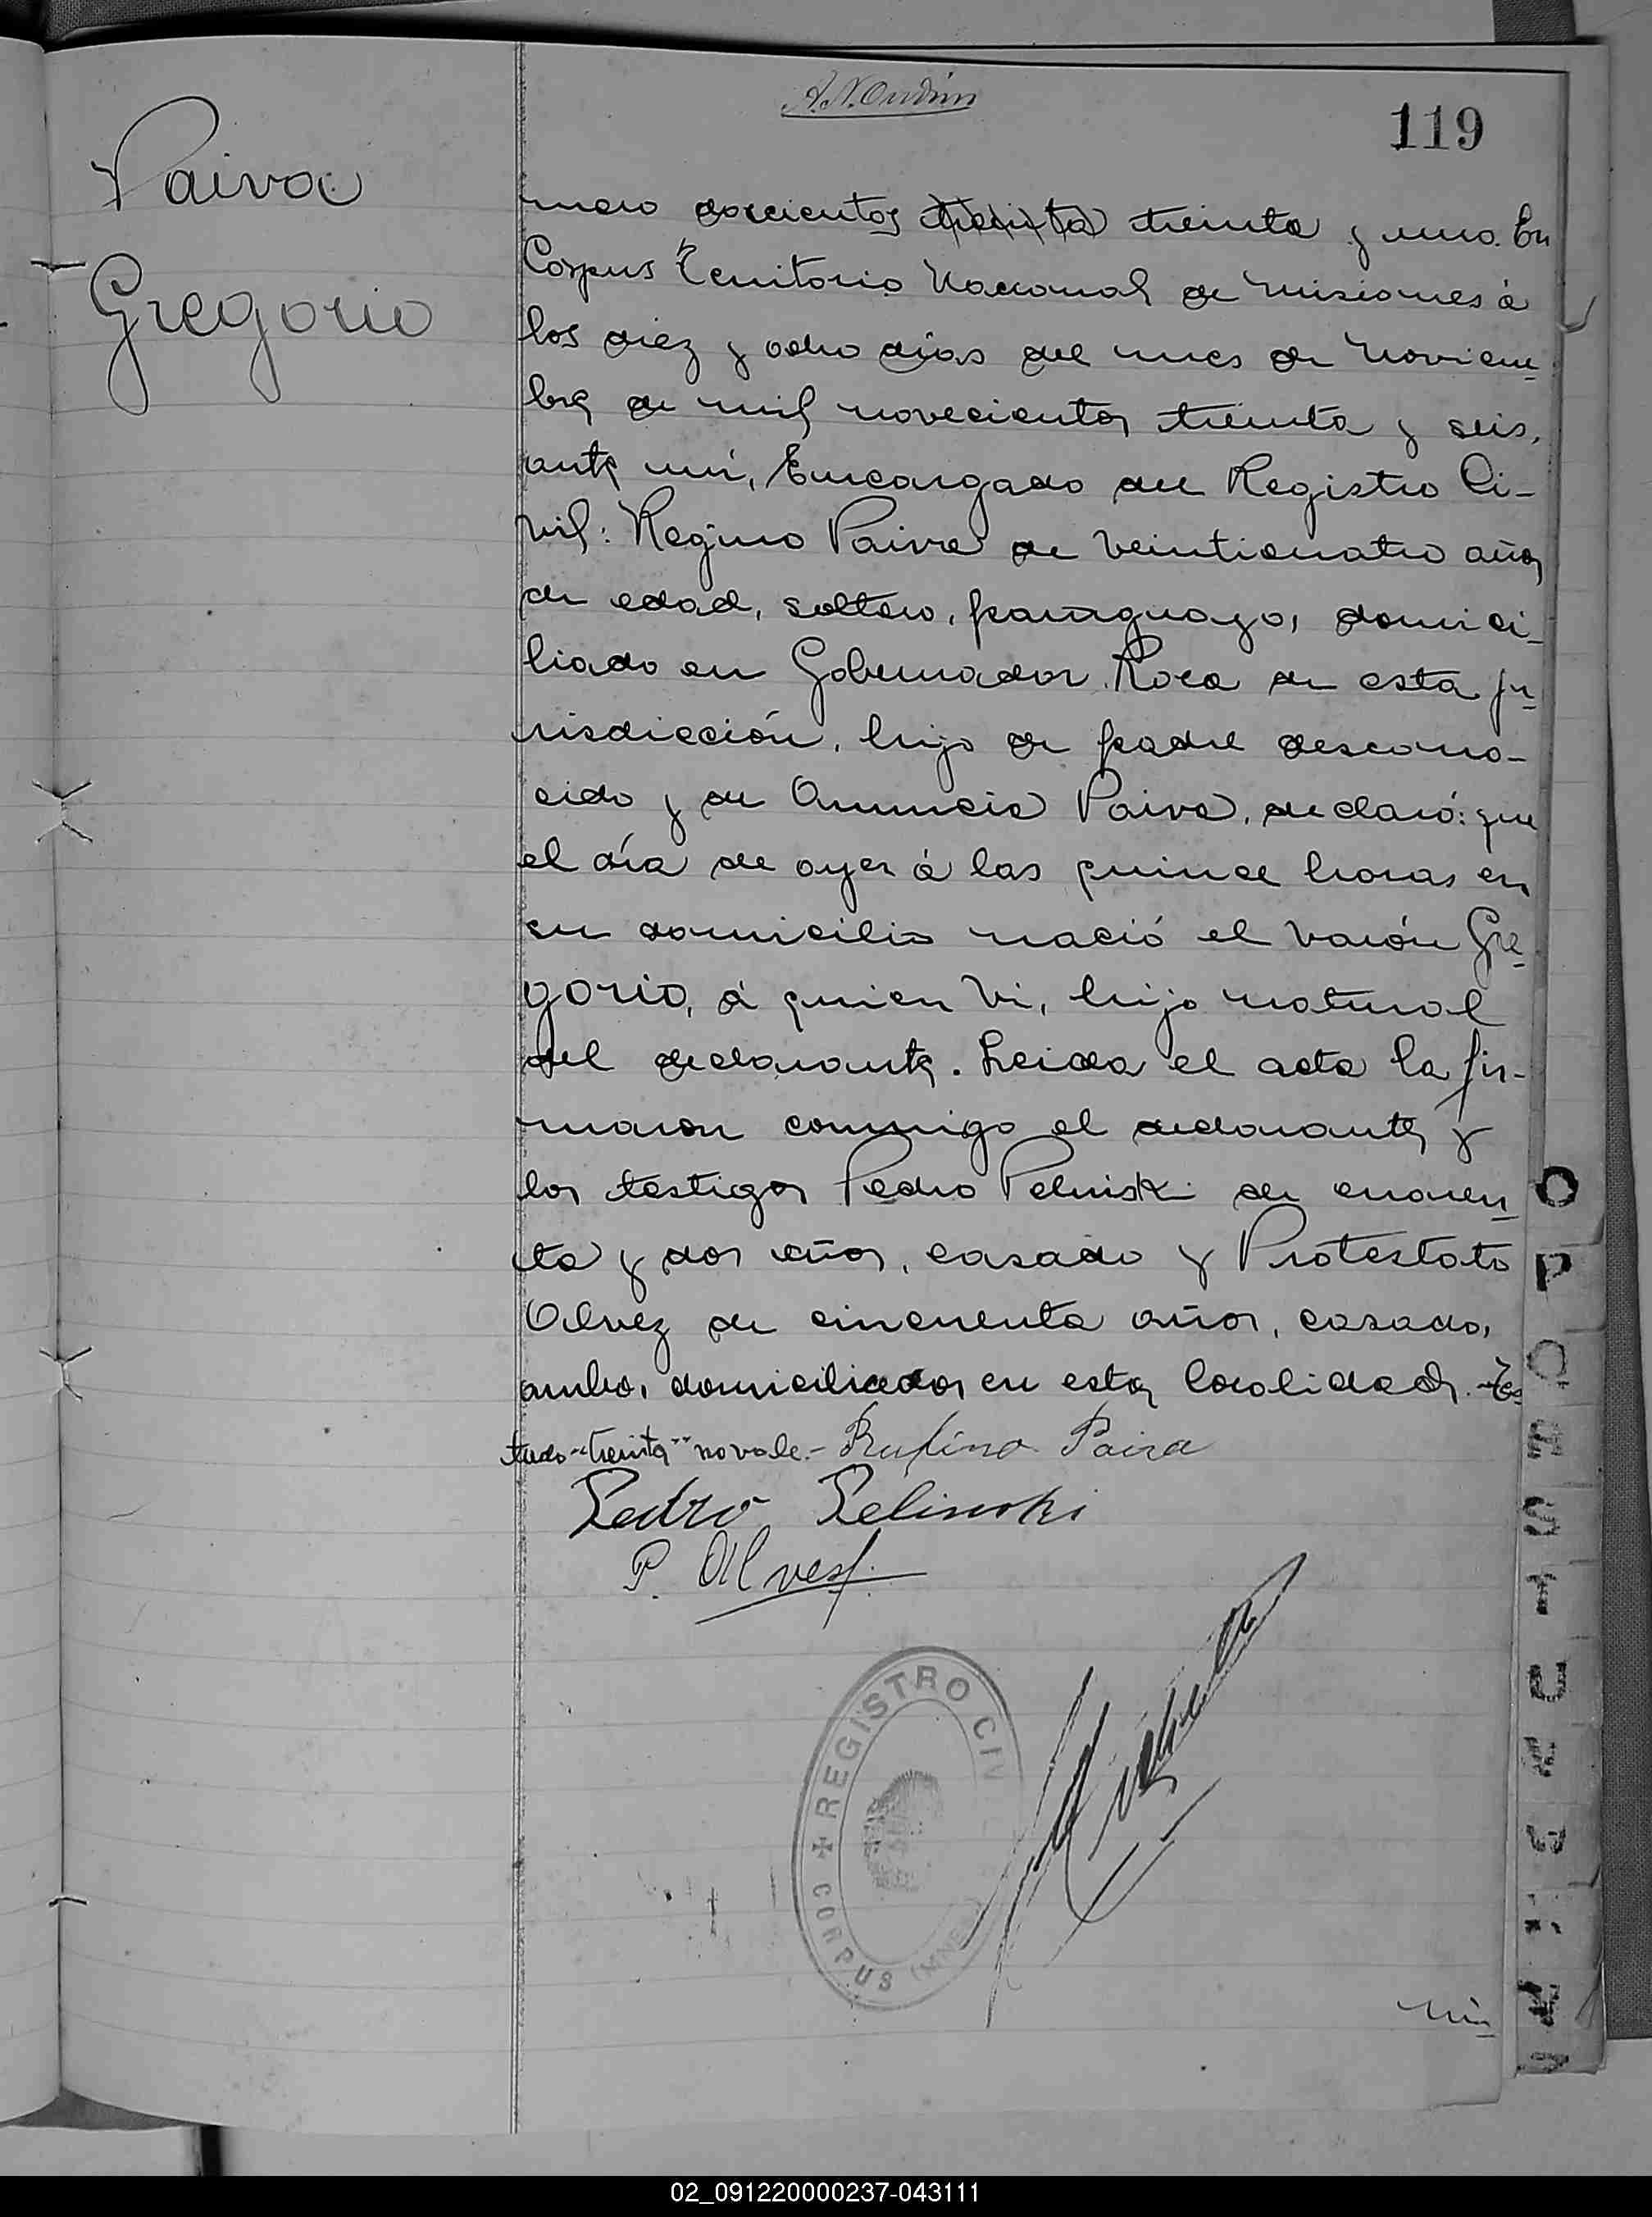 A. N. Ondím
119
Paiva
Gregorio
mero doscientos treinta treinta y uno. En
Corpus Territorio Nacional de Misiones á
los diez y ocho dias del mes de Noviem-
bre de mil novecientos treinta y seis,
ante mi, Encargado del Registro Ci-
vil: Regino Paiva de veinticuatro años
de edad, soltero, paraguayo, domici-
liado en Gobernador Roca de esta ju-
risdicción, hijo de padre descono-
cido y de Anuncia Paiva, declaró: que
el día de ayer á las quince horas en
su domicilio nació el varón Gre-
gorio, á quien vi, hijo natural
del declarante. Leida el acta la fir-
maron conmigo el declarante y
los testigos Pedro Pelinski de cuaren-
ta y dos años, casado y Protestato
Alvez de cincuenta años, casado,
ambos domiciliados en esta localidad. Tes
tado "treinta" no vale.- Rufino Paiva
Pedro Pelinski
P. Alvez
REGISTRO CIV
CORPUS (MNES
Nú-